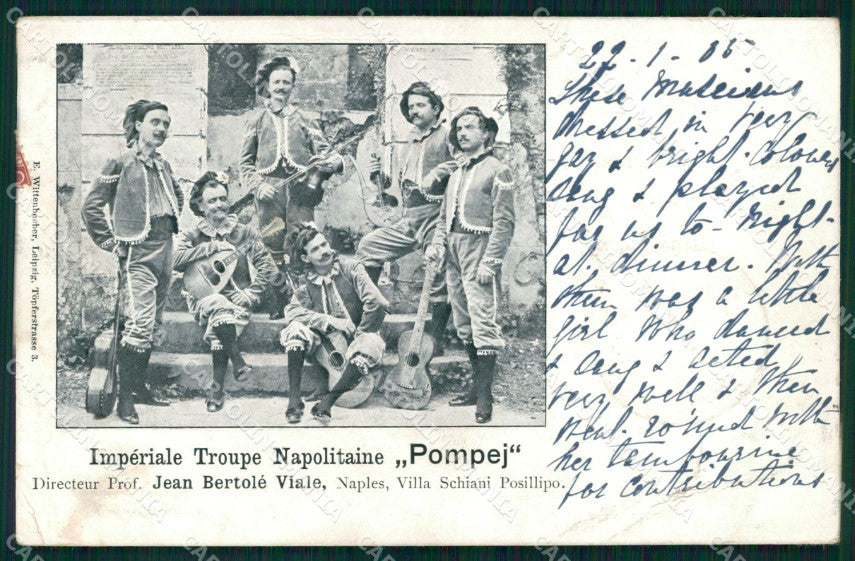 E. Wittenbecher, Leipzig, Töpferstrasse 3.
Impériale Troupe Napolitaine „Pompej“
Directeur Prof. Jean Bertolé Viale, Naples, Villa Schiani Posillipo.
1 - 05
These Musicians
dressed in very
gay & bright colours
sang & played
for us to-night
at dinner. With
them was a little
girl who danced
& sang & acted
very well & then
went round with
her tambourine
for contributions